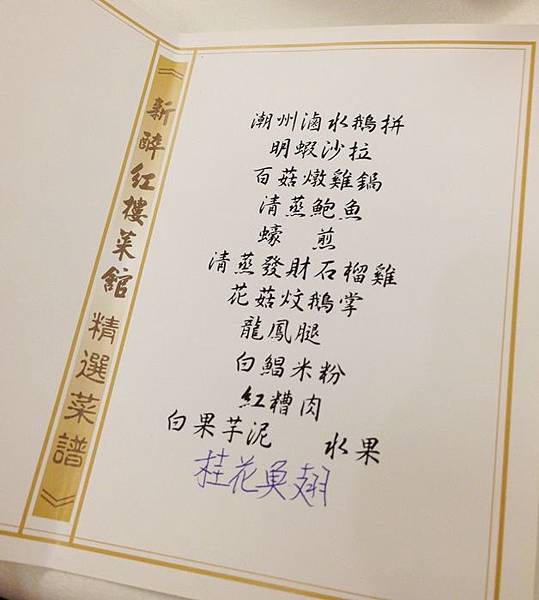 《新醉紅樓菜館精選菜譜》
潮州滷水鵝拼
明蝦沙拉
百菇燉雞鍋
清蒸鮑魚
蠔 煎
清蒸發財石榴雞
花菇炆鵝掌
龍鳳腿
白鯧米粉
紅糟肉
白果芋泥 水果
桂花魚翅